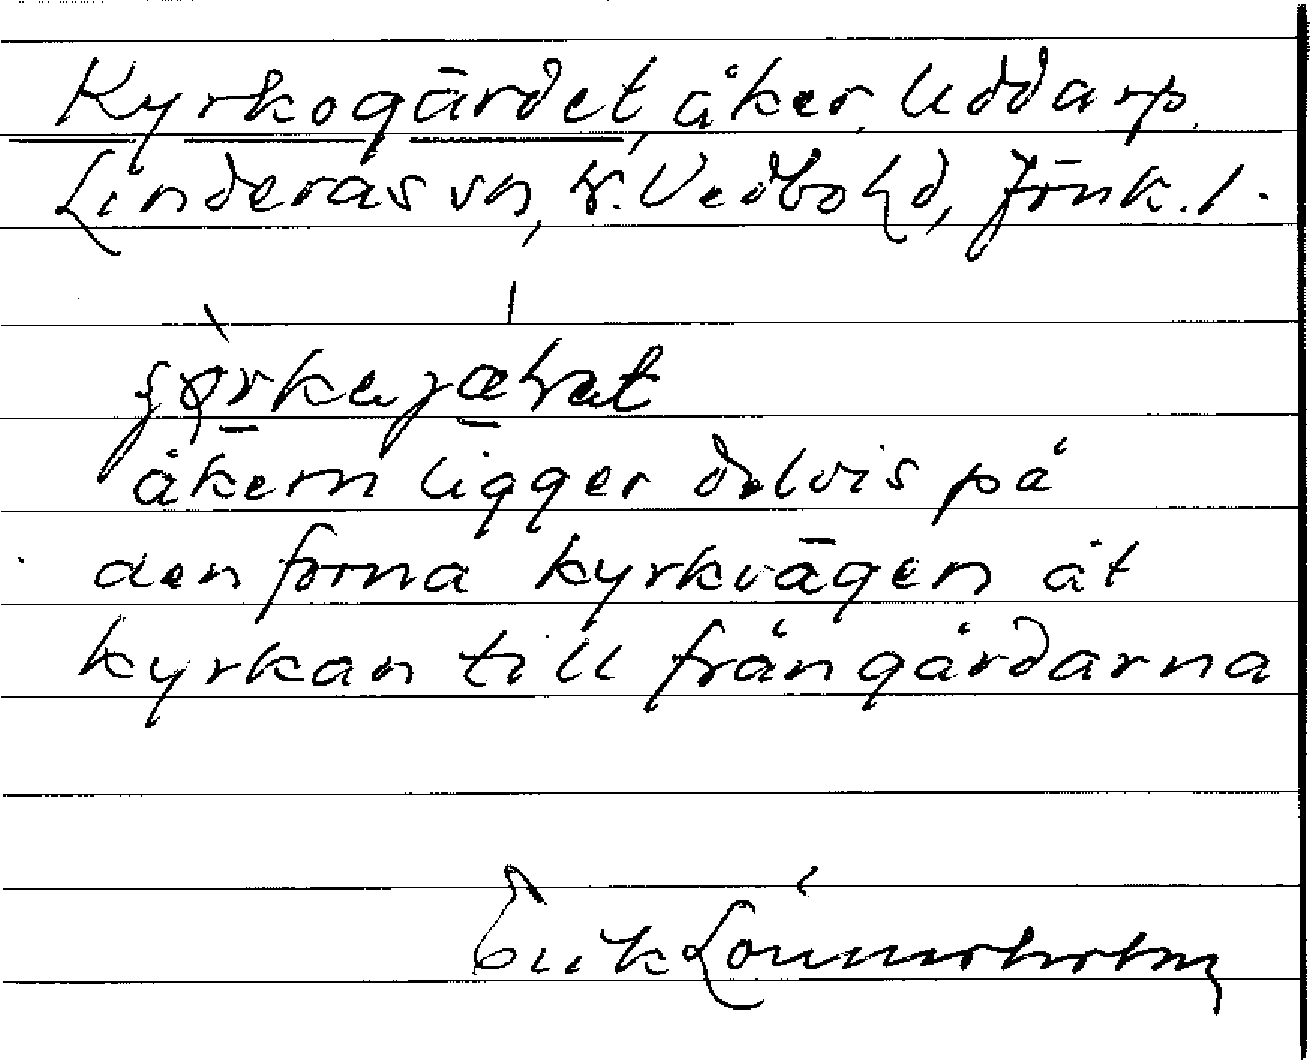 Kyrkogärdet, åker, Uddarp.
Linderås sn, N. Vedbo hd, Jönk. l.
åkern ligger delvis på
den forna kyrkvägen åt
kyrkan till frångårdarna
Erik Lönnerholm